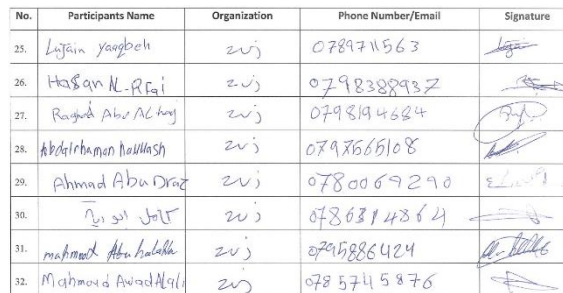 No. Participants Name Organization Phone Number/Email Signature
25. Lujain yaaqbeh zuj 0789711563
26. Hasan AL-Rfai zuj 0798388937
27. Raghad Abu AL haj zuj 0798194684
28. Abdalrhaman zuj 0797565108
29. Ahmad Abu Draz zuj 0780069290
30. zuj 0786314864
31. mahmood Abu zuj 0795886424
32. Mahmoud Awad Alali zuj 0785745876